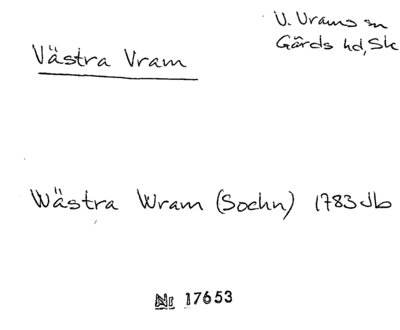 Västra Vram
V. Vrams sn
Gärds hd, Sk
Wästra Wram (Sochn) 1783 Jb
Nr 17653